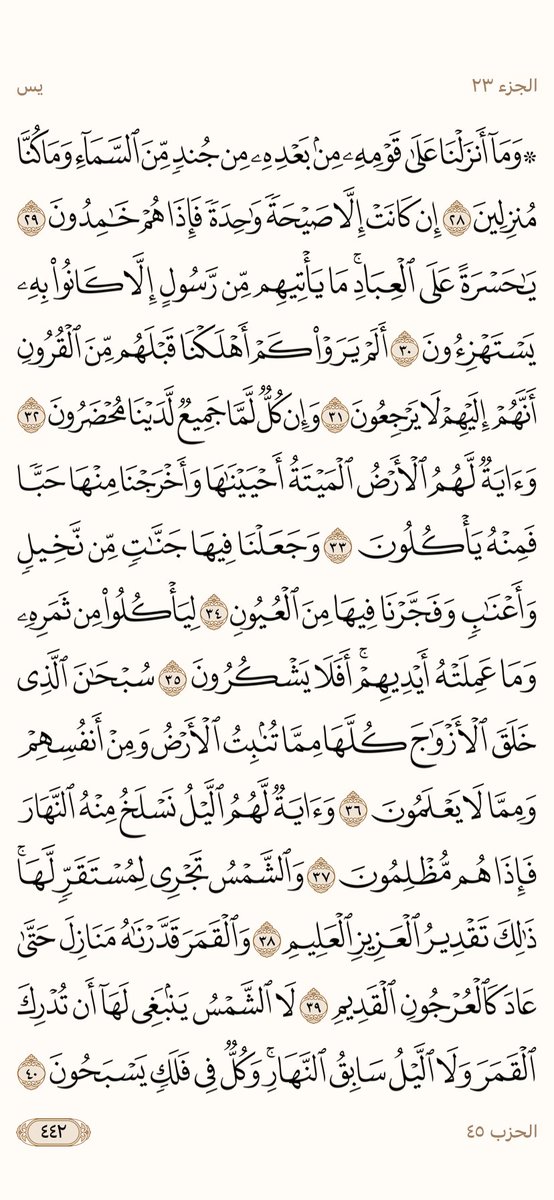 الجزء ٢٣
يس
۞ وَمَآ أَنزَلۡنَا عَلَىٰ قَوۡمِهِۦ مِنۢ بَعۡدِهِۦ مِن جُندٖ مِّنَ ٱلسَّمَآءِ وَمَا كُنَّا
مُنزِلِينَ ٢٨ إِن كَانَتۡ إِلَّا صَيۡحَةٗ وَٰحِدَةٗ فَإِذَا هُمۡ خَٰمِدُونَ ٢٩
يَٰحَسۡرَةً عَلَى ٱلۡعِبَادِۚ مَا يَأۡتِيهِم مِّن رَّسُولٍ إِلَّا كَانُواْ بِهِۦ
يَسۡتَهۡزِءُونَ ٣٠ أَلَمۡ يَرَوۡاْ كَمۡ أَهۡلَكۡنَا قَبۡلَهُم مِّنَ ٱلۡقُرُونِ
أَنَّهُمۡ إِلَيۡهِمۡ لَا يَرۡجِعُونَ ٣١ وَإِن كُلّٞ لَّمَّا جَمِيعٞ لَّدَيۡنَا مُحۡضَرُونَ ٣٢
وَءَايَةٞ لَّهُمُ ٱلۡأَرۡضُ ٱلۡمَيۡتَةُ أَحۡيَيۡنَٰهَا وَأَخۡرَجۡنَا مِنۡهَا حَبّٗا
فَمِنۡهُ يَأۡكُلُونَ ٣٣ وَجَعَلۡنَا فِيهَا جَنَّٰتٖ مِّن نَّخِيلٖ
وَأَعۡنَٰبٖ وَفَجَّرۡنَا فِيهَا مِنَ ٱلۡعُيُونِ ٣٤ لِيَأۡكُلُواْ مِن ثَمَرِهِۦ
وَمَا عَمِلَتۡهُ أَيۡدِيهِمۡۚ أَفَلَا يَشۡكُرُونَ ٣٥ سُبۡحَٰنَ ٱلَّذِي
خَلَقَ ٱلۡأَزۡوَٰجَ كُلَّهَا مِمَّا تُنۢبِتُ ٱلۡأَرۡضُ وَمِنۡ أَنفُسِهِمۡ
وَمِمَّا لَا يَعۡلَمُونَ ٣٦ وَءَايَةٞ لَّهُمُ ٱلَّيۡلُ نَسۡلَخُ مِنۡهُ ٱلنَّهَارَ
فَإِذَا هُم مُّظۡلِمُونَ ٣٧ وَٱلشَّمۡسُ تَجۡرِي لِمُسۡتَقَرّٖ لَّهَاۚ
ذَٰلِكَ تَقۡدِيرُ ٱلۡعَزِيزِ ٱلۡعَلِيمِ ٣٨ وَٱلۡقَمَرَ قَدَّرۡنَٰهُ مَنَازِلَ حَتَّىٰ
عَادَ كَٱلۡعُرۡجُونِ ٱلۡقَدِيمِ ٣٩ لَا ٱلشَّمۡسُ يَنۢبَغِي لَهَآ أَن تُدۡرِكَ
ٱلۡقَمَرَ وَلَا ٱلَّيۡلُ سَابِقُ ٱلنَّهَارِۚ وَكُلّٞ فِي فَلَكٖ يَسۡبَحُونَ ٤٠
الحزب ٤٥
٤٤٢